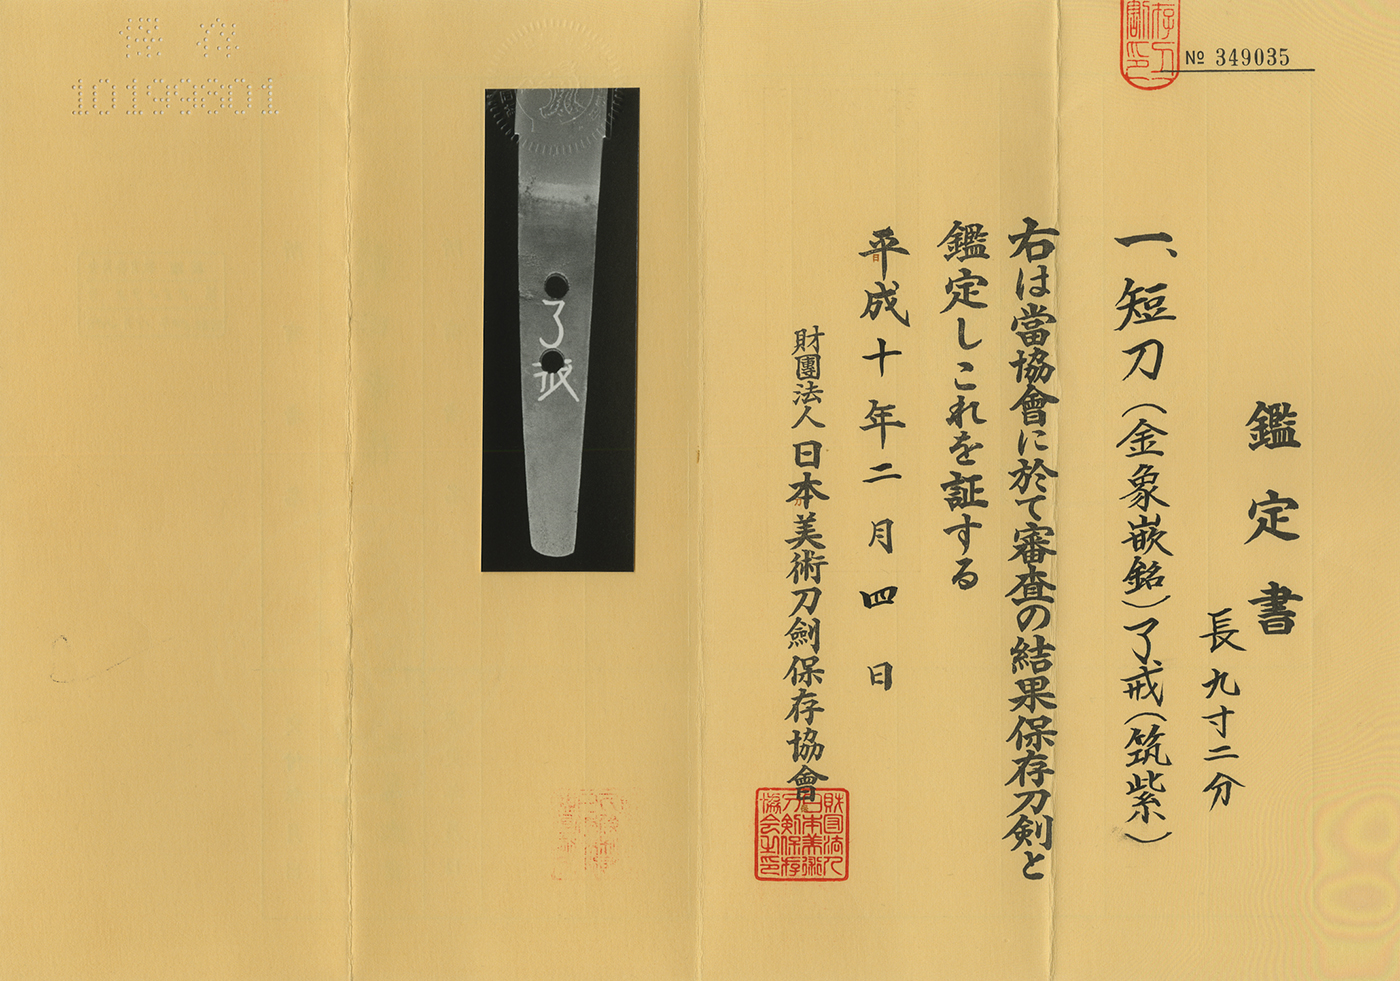 № 349035
鑑定書
長九寸二分
一、短刀（金象嵌銘）了戒（筑紫）
右は當協會に於て審査の結果保存刀剣と
鑑定しこれを証する
平成十年二月四日
財團法人日本美術刀劍保存協會
財団法人日本美術刀剣保存協会之印
了戒
保存
10199601